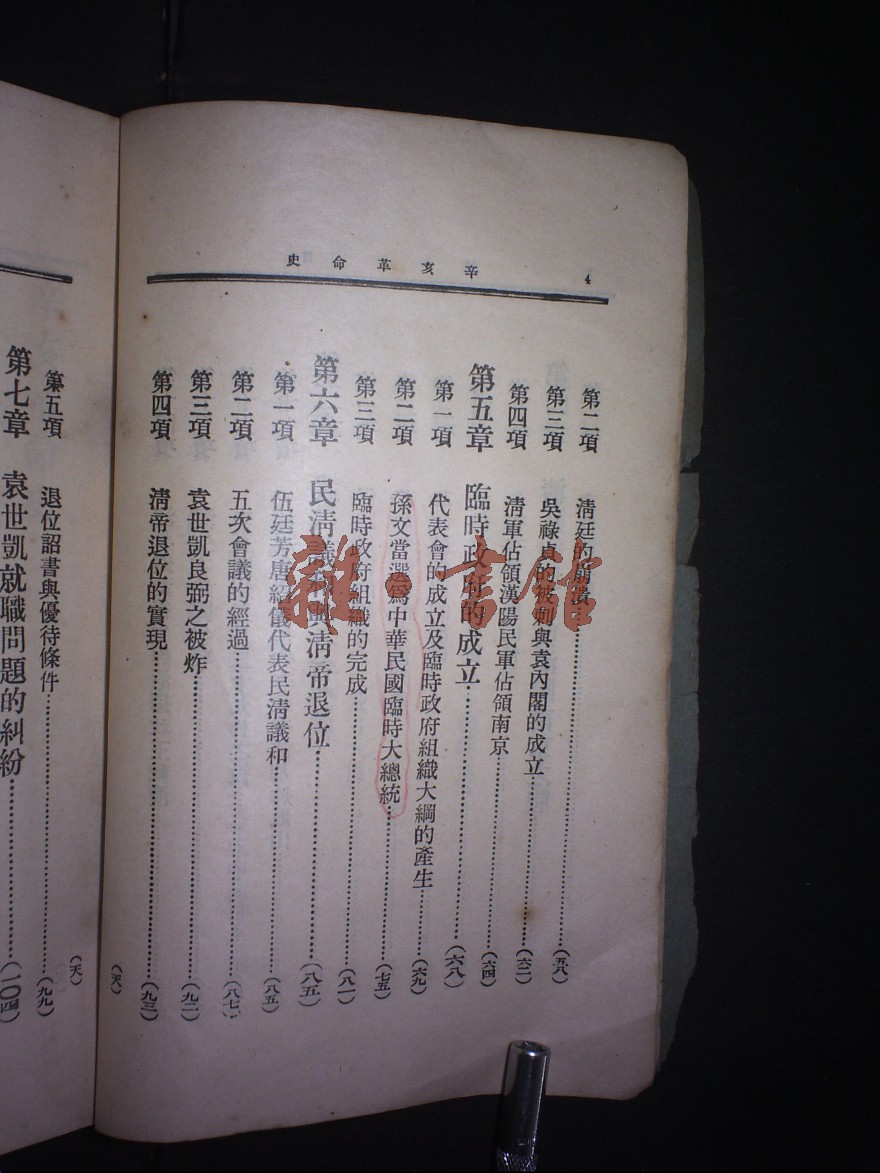 辛亥革命史
4
第二項 清廷的崩潰……(五八)
第三項 吳祿貞的被刺與袁內閣的成立……(六二)
第四項 清軍佔領漢陽民軍佔領南京……(六四)
第五章 臨時政府的成立……(六八)
第一項 代表會的成立及臨時政府組織大綱的產生……(六九)
第二項 孫文當選爲中華民國臨時大總統……(七五)
第三項 臨時政府組織的完成……(八一)
第六章 民清議和與清帝退位……(八五)
第一項 伍廷芳唐紹儀代表民清議和……(八五)
第二項 五次會議的經過……(八七)
第三項 袁世凱良弼之被炸……(九二)
第四項 清帝退位的實現……(九三)
(天)
(天)
第五項 退位詔書與優待條件……(九九)
第七章 袁世凱就職問題的糾紛……(一〇四)
雜·書館